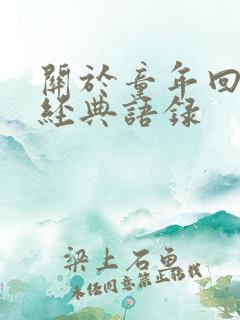 關於童年回
經典語录
梁上石魚
未经同意禁止转载